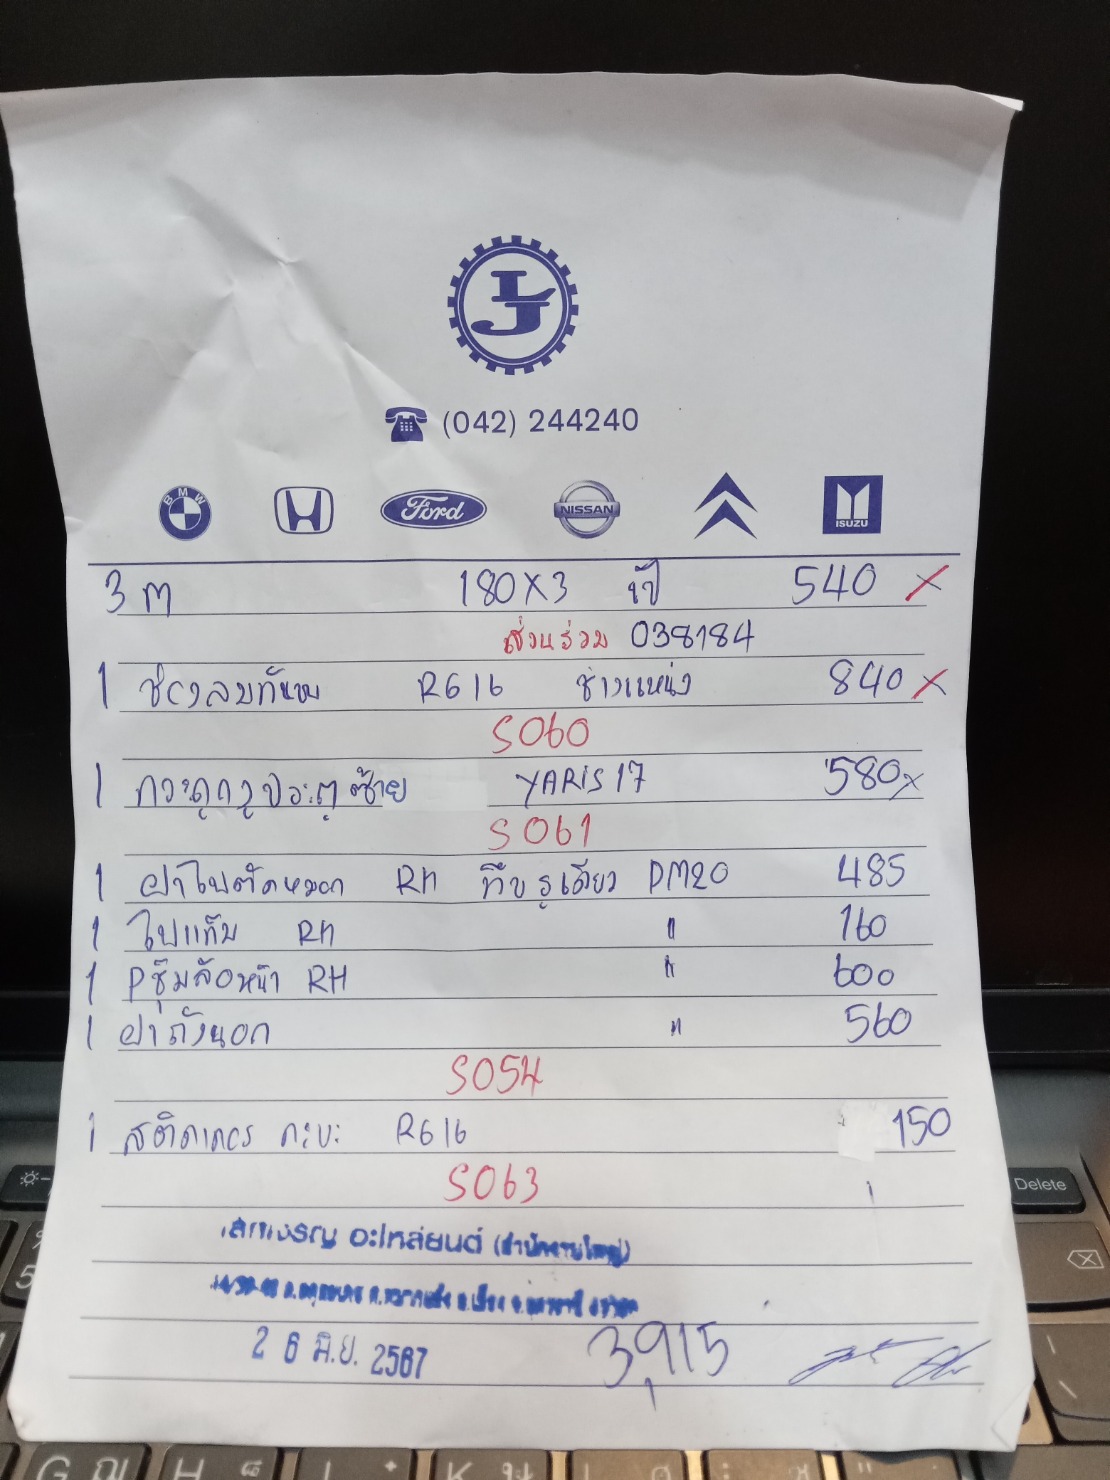 LJ
(042) 244240
BMW Ford NISSAN ISUZU
3 ต 180X3 540 X
ส่วนร่วม 038184
1 R616 ช่างแหน่ง 840 X
S060
1 กระดูกงูประตูซ้าย YARIS 17 580 X
S061
1 ฝาไฟตัดหมอก RH ทึบ รูเดียว DM20 485
1 ไฟแก้ม RH " 160
1 Pซุ้มล้อหน้า RH " 600
1 ฝาถังนอก " 560
S054
1 สติคเกอร์ กะบะ R616 150
S063
เสกเจริญ อะไหล่ยนต์ (สำนักงานใหญ่)
26 มิ.ย. 2567 3,915
Delete
5
G ญ H K